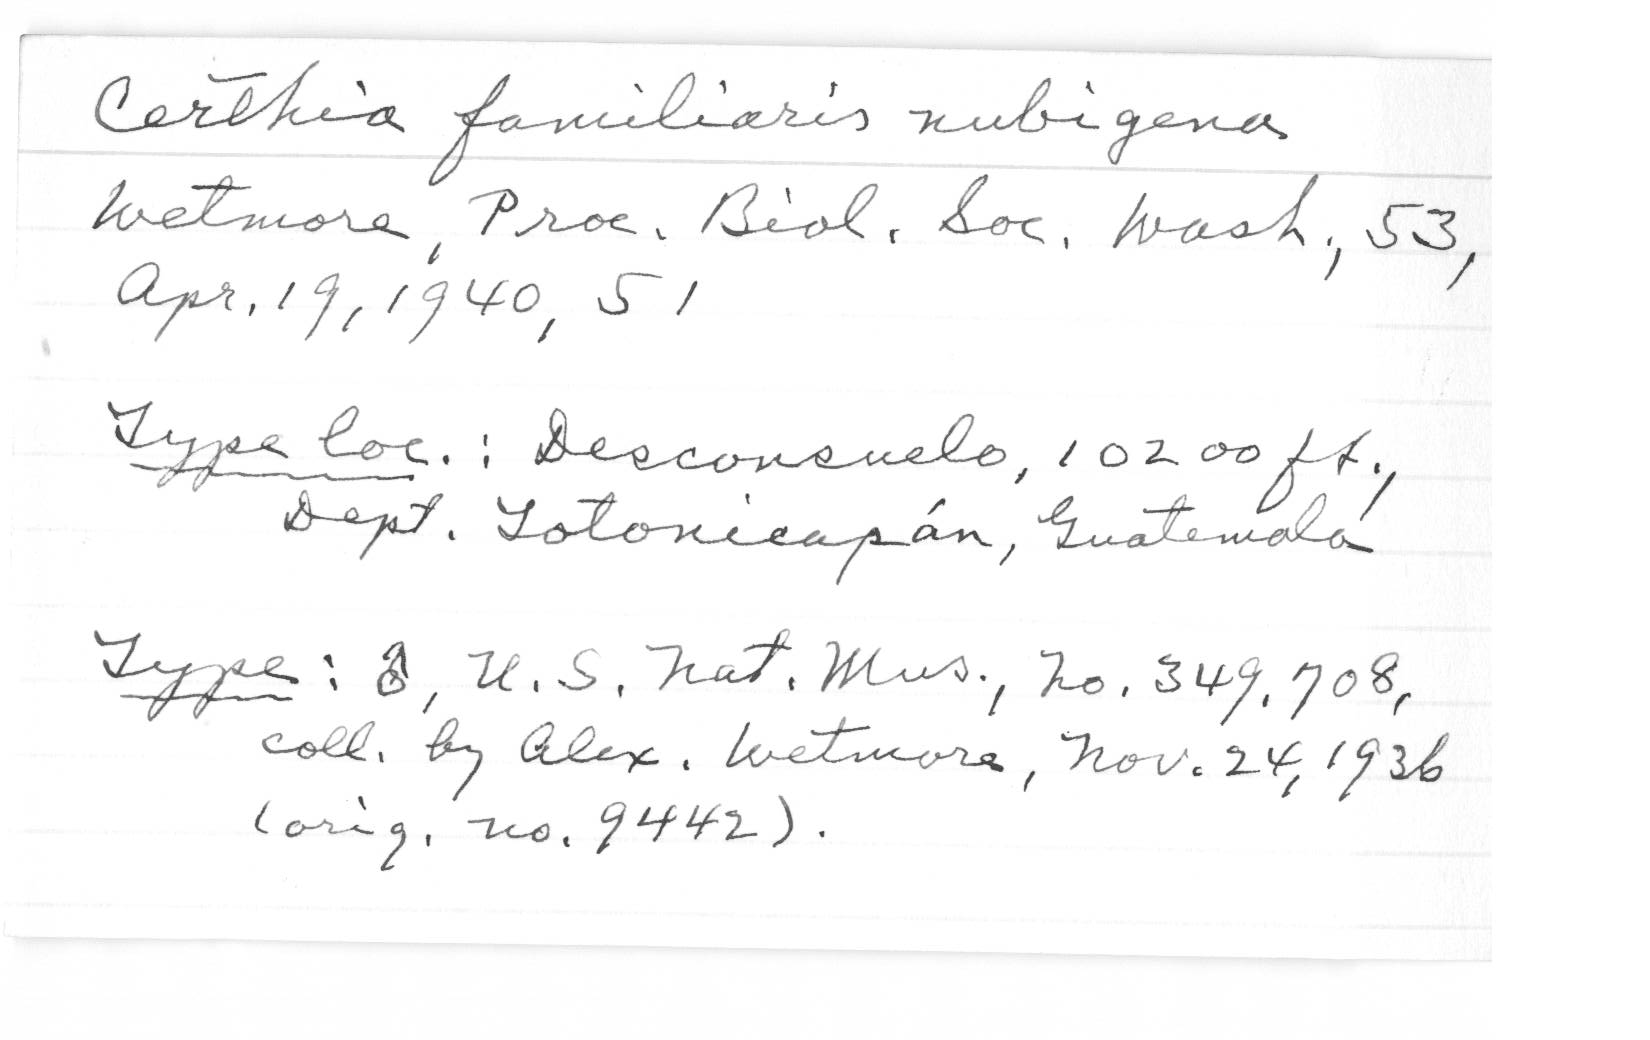 Certhia familiaris nubigena
Wetmore, Proc. Biol. Soc. Wash., 53,
Apr. 19, 1940, 51
Type loc. : Desconsuelo, 10200 ft.,
Dept. Totonicapán, Guatemala
Type : ♂, U. S. Nat. Mus., No. 349,708,
coll. by Alex. Wetmore, Nov. 24, 1936
(orig. no. 9442).